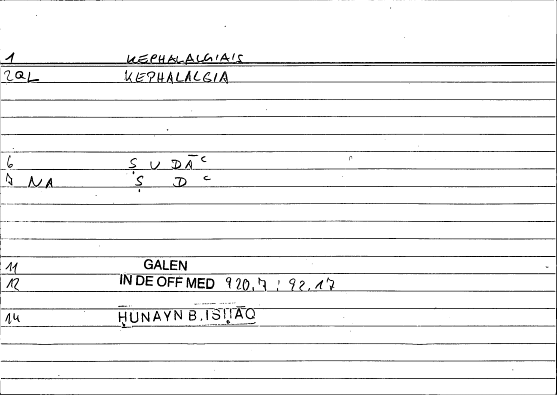 1 KEPHALALGIAIS
2 QL KEPHALALGIA
6 Ṣ U DĀ ʿ
7 NA Ṣ D ʿ
11 GALEN
12 IN DE OFF MED 920,7 : 92.17
14 ḤUNAYN B. ISḤĀQ